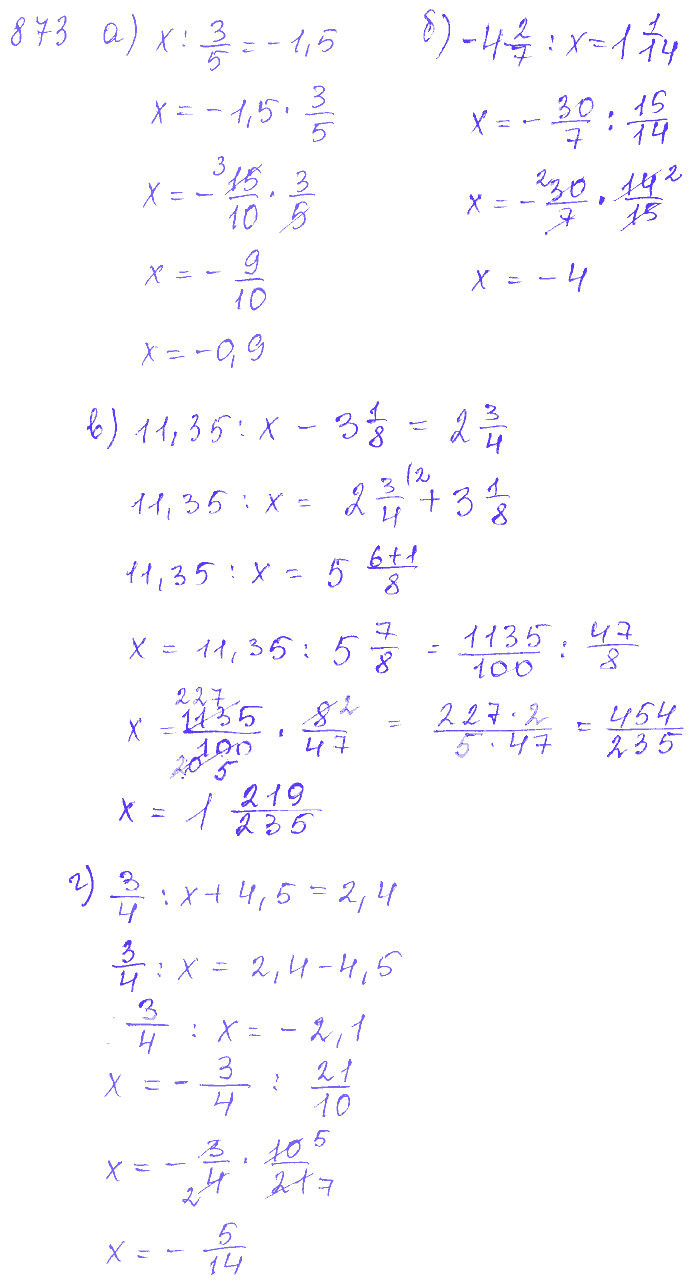 873 а) x : 3/5 = -1,5
x = -1,5 · 3/5
x = - 15/10 · 3/5 3
x = - 9/10
x = -0,9
б) -4 2/7 : x = 1 1/14
x = - 30/7 : 15/14
x = - 30/7 · 14/15 2 2
x = -4
в) 11,35 : x - 3 1/8 = 2 3/4
11,35 : x = 2 3/4 (2 + 3 1/8
11,35 : x = 5 6+1/8
x = 11,35 : 5 7/8 = 1135/100 : 47/8
x = 1135/100 · 8/47 = 227·2/5·47 = 454/235 227 20 5 2
x = 1 219/235
г) 3/4 : x + 4,5 = 2,4
3/4 : x = 2,4 - 4,5
3/4 : x = -2,1
x = - 3/4 : 21/10
x = - 3/4 · 10/21 2 5 7
x = - 5/14